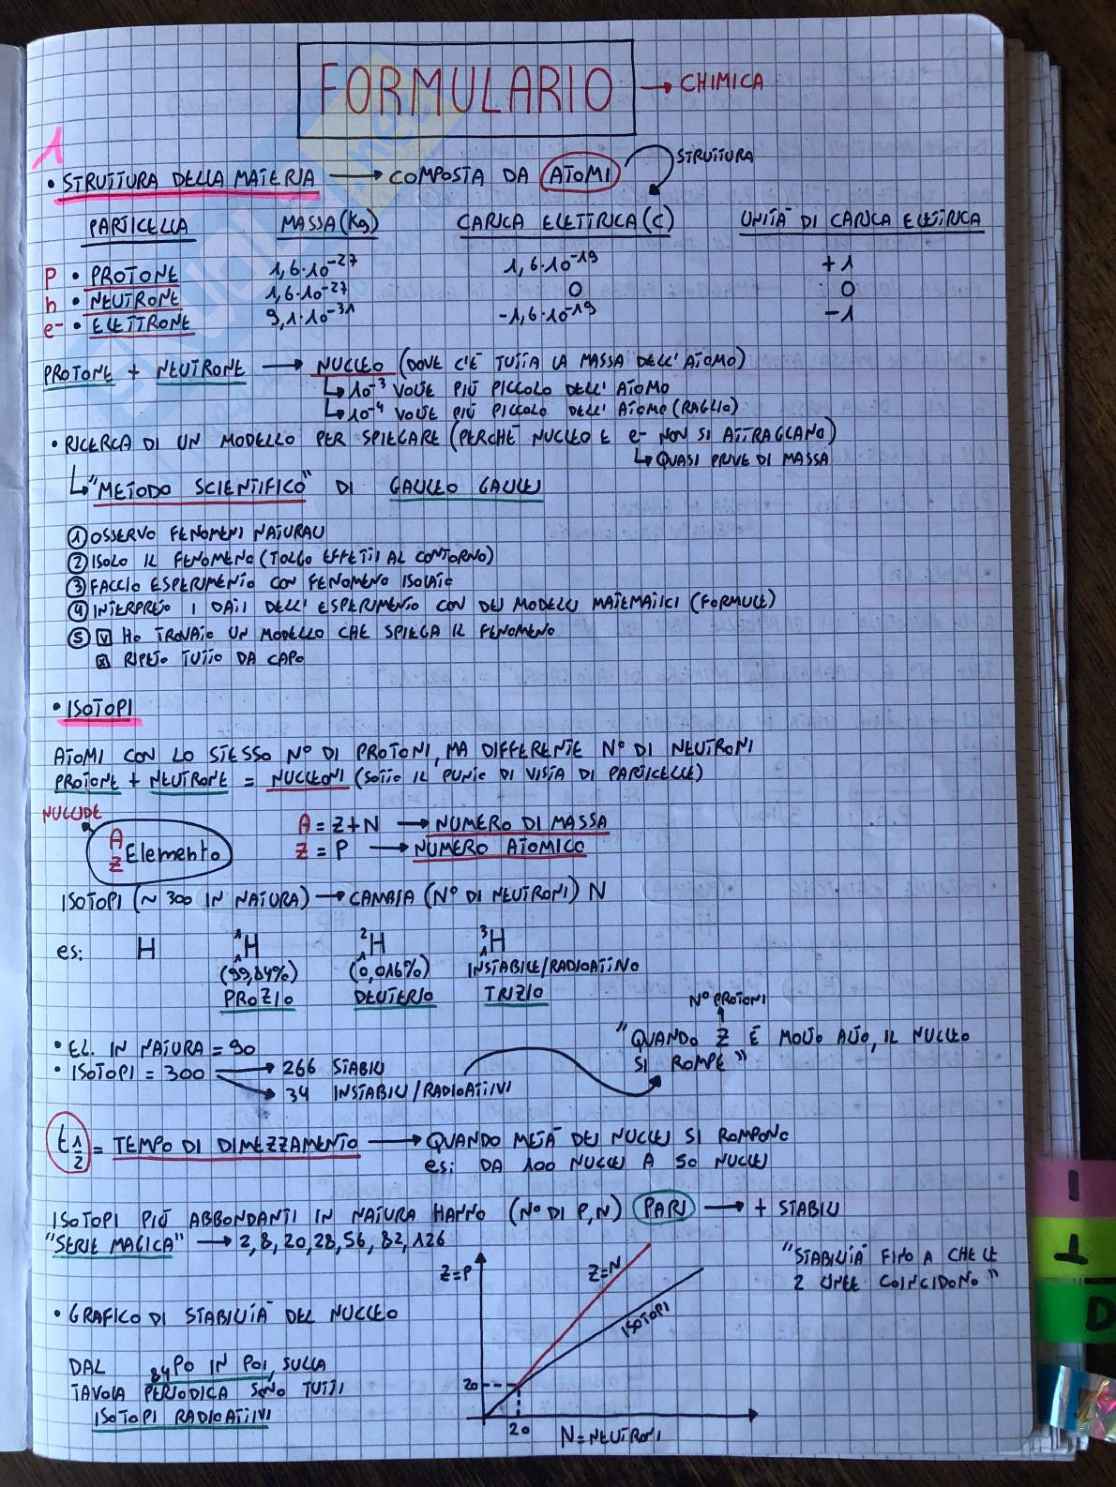 FORMULARIO → CHIMICA
1
• STRUTTURA DELLA MATERIA → COMPOSTA DA ATOMI STRUTTURA
PARTICELLA MASSA (Kg) CARICA ELETTRICA (C) UNITÀ DI CARICA ELETTRICA
p • PROTONE 1,6·10⁻²⁷ 1,6·10⁻¹⁹ +1
n • NEUTRONE 1,6·10⁻²⁷ 0 0
e⁻ • ELETTRONE 9,1·10⁻³¹ -1,6·10⁻¹⁹ -1
PROTONE + NEUTRONE → NUCLEO (DOVE C'È TUTTA LA MASSA DELL'ATOMO)
↳ 10⁻³ VOLTE PIÙ PICCOLO DELL'ATOMO
↳ 10⁻⁴ VOLTE PIÙ PICCOLO DELL'ATOMO (RAGGIO)
• RICERCA DI UN MODELLO PER SPIEGARE (PERCHÈ NUCLEO E e⁻ NON SI ATTRAGGANO)
↳ QUASI PRIVE DI MASSA
↳ "METODO SCIENTIFICO" DI GALILEO GALILEI
① OSSERVO FENOMENI NATURALI
② ISOLO IL FENOMENO (TOLGO EFFETTI AL CONTORNO)
③ FACCIO ESPERIMENTO CON FENOMENO ISOLATO
④ INTERPRETO I DATI DELL'ESPERIMENTO CON DEI MODELLI MATEMATICI (FORMULE)
⑤ ☑ HO TROVATO UN MODELLO CHE SPIEGA IL FENOMENO
☒ RIPETO TUTTO DA CAPO
• ISOTOPI
ATOMI CON LO STESSO N° DI PROTONI, MA DIFFERENTE N° DI NEUTRONI
PROTONE + NEUTRONE = NUCLEONI (SOTTO IL PUNTO DI VISTA DI PARTICELLE)
NUCLIDE
A Z Elemento
A = Z+N → NUMERO DI MASSA
Z = P → NUMERO ATOMICO
ISOTOPI (~ 300 IN NATURA) → CAMBIA (N° DI NEUTRONI) N
es: H ¹₁H ²₁H ³₁H
(99,84%) (0,016%) INSTABILE/RADIOATTIVO
PROZIO DEUTERIO TRIZIO
N° PROTONI
• EL. IN NATURA = 90 "QUANDO Z È MOLTO ALTO, IL NUCLEO
• ISOTOPI = 300 → 266 STABILI SI ROMPE"
→ 34 INSTABILI/RADIOATTIVI
t½ = TEMPO DI DIMEZZAMENTO → QUANDO METÀ DEI NUCLEI SI ROMPONO
es: DA 100 NUCLEI A 50 NUCLEI
ISOTOPI PIÙ ABBONDANTI IN NATURA HANNO (N° DI P,N) PARI → + STABILI
"SERIE MAGICA" → 2, 8, 20, 28, 56, 82, 126
"STABILITÀ FINO A CHE LE
2 LINEE COINCIDONO"
• GRAFICO DI STABILITÀ DEL NUCLEO
DAL ₈₄PO IN POI, SULLA
TAVOLA PERIODICA SONO TUTTI
ISOTOPI RADIOATTIVI
Z=P
Z=N
ISOTOPI
20
20
N = NEUTRONI
I
I
D